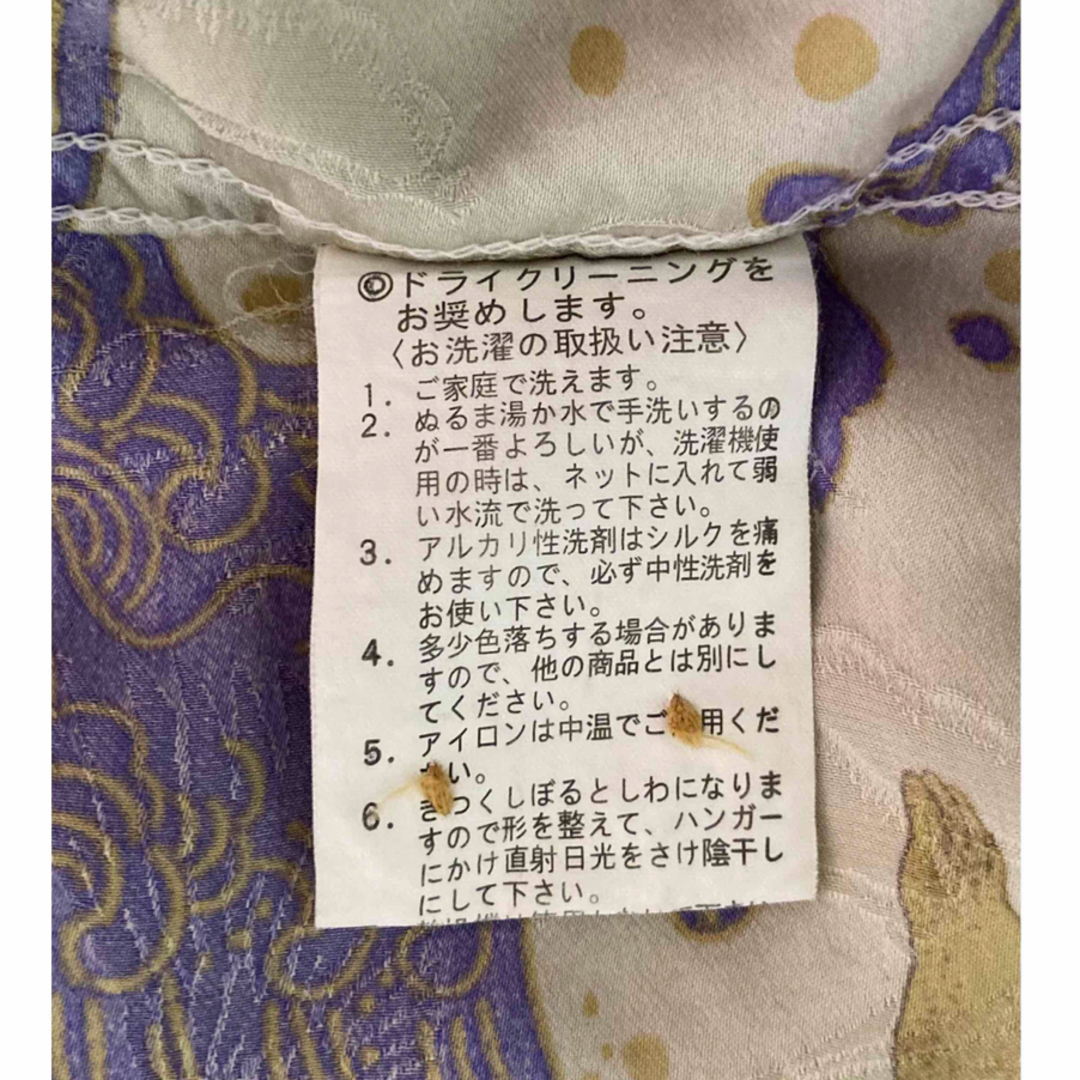 ◎ドライクリーニングを
お奨めします。
〈お洗濯の取扱い注意〉
1. ご家庭で洗えます。
2. ぬるま湯か水で手洗いするの
が一番よろしいが、洗濯機使
用の時は、ネットに入れて弱
い水流で洗って下さい。
3. アルカリ性洗剤はシルクを痛
めますので、必ず中性洗剤を
お使い下さい。
4. 多少色落ちする場合がありま
すので、他の商品とは別にし
てください。
5. アイロンは中温でご用くだ
い。
6. きつくしぼるとしわになりま
すので形を整えて、ハンガー
にかけ直射日光をさけ陰干し
にして下さい。